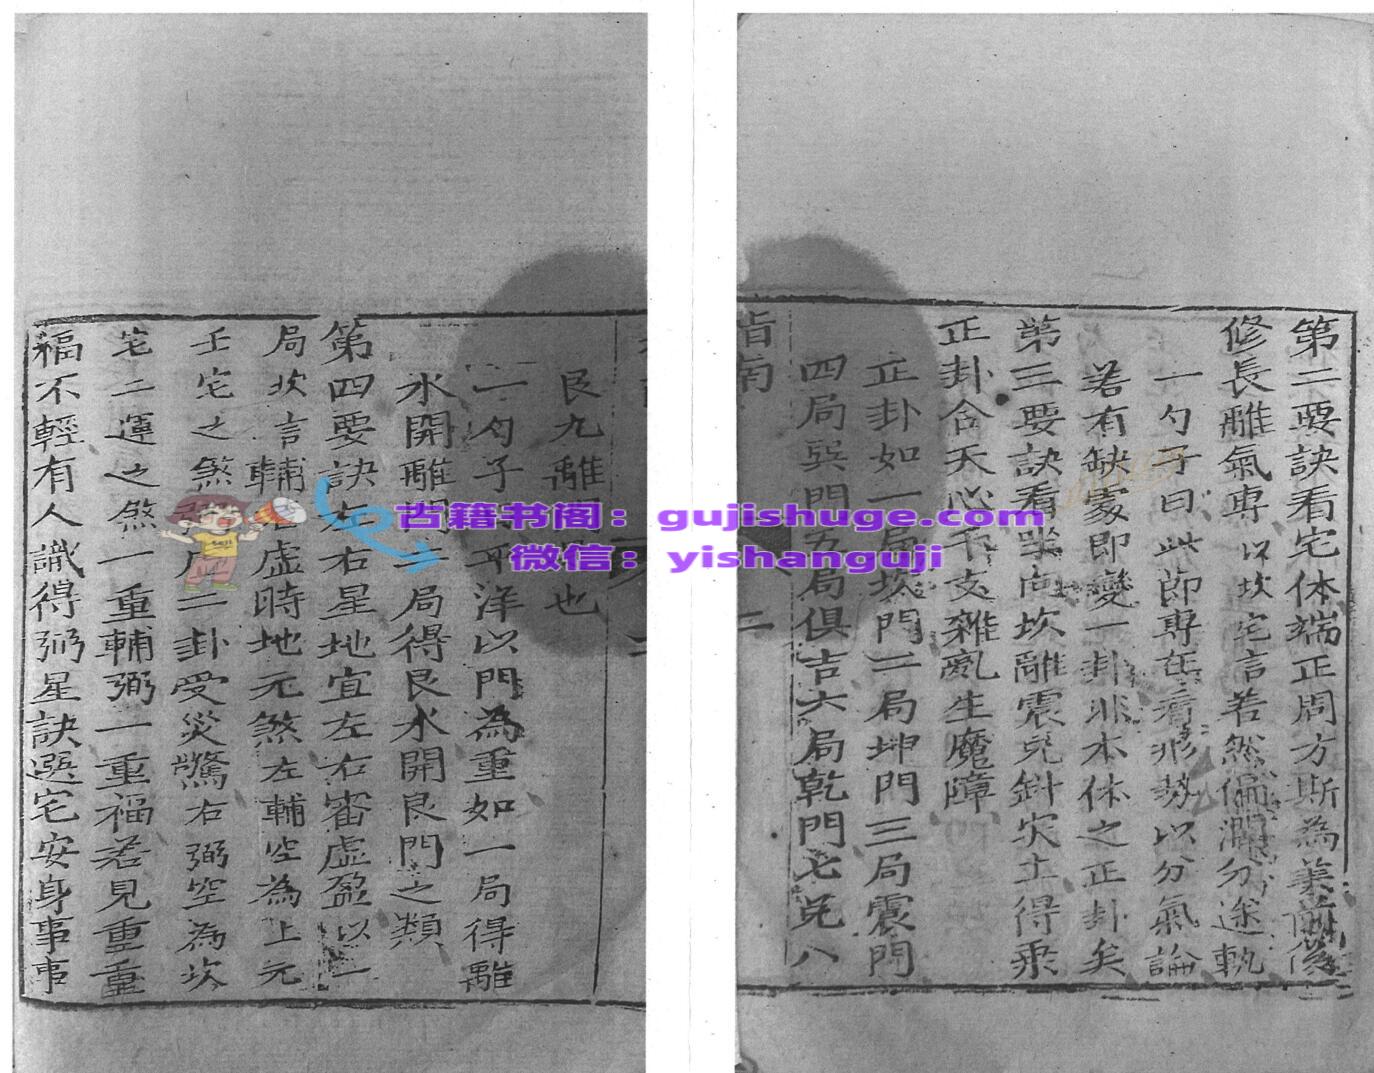 第二要訣看宅体端正周方斯為美前後
修長離氣専以坎宅言若然偏濶分途軌
一勺子曰此節専在看形势以分氣論
若有缺蒙即變一卦非本体之正卦矣
第三要訣看坐向坎離震兌針穴土得乘
正卦合天心干支雜亂生魔障
正卦如一局坎門二局坤門三局震門
四局巽門五局俱吉六局乾門七兌八
指南
二
艮九離門是也
一勺子曰耳洋以門為重如一局得離
水開離門二局得艮水開良門之類
第四要訣左右星地宜左右審虛盈以一
局坎言輔虛時地元煞左輔空為上元
壬宅之煞二卦受災驚右弼空為坎
宅二運之煞一重輔弼一重福若見重重
福不輕有人識得弼星訣選宅安身事事
古籍书阁：gujishuge.com
微信：yishanguji